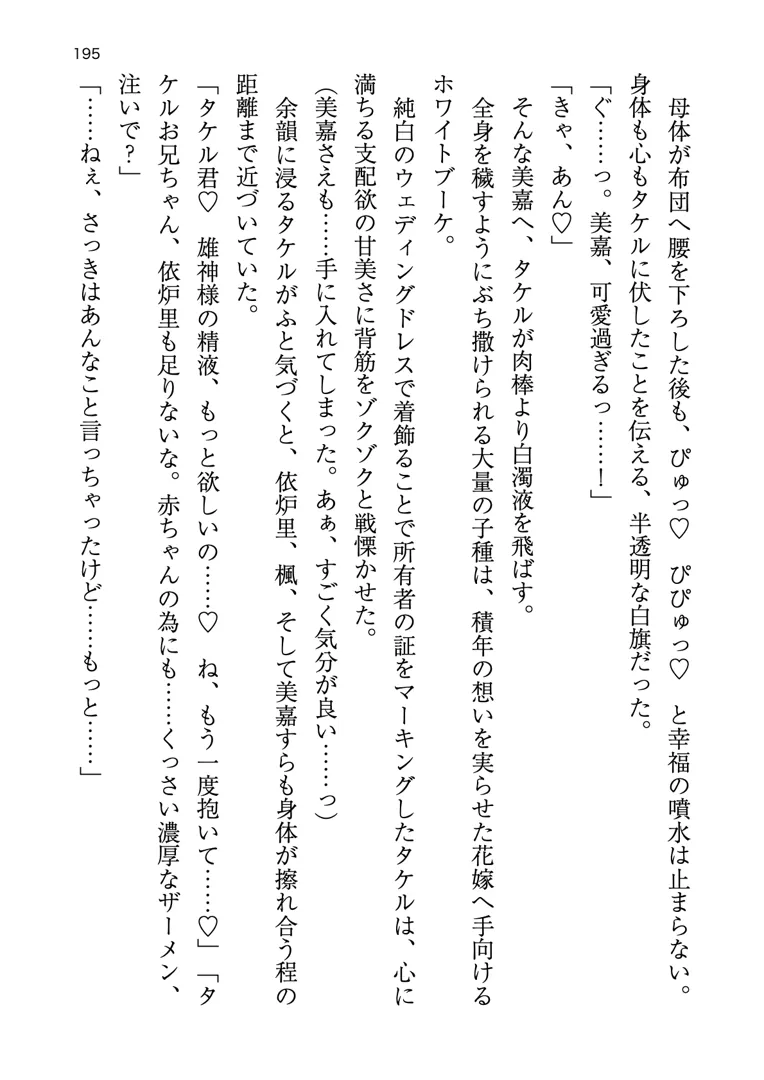 195
母体が布団へ腰を下ろした後も、ぴゅっ♡　ぴぴゅっ♡　と幸福の噴水は止まらない。
身体も心もタケルに伏したことを伝える、半透明な白旗だった。
「ぐ……っ。美嘉、可愛過ぎるっ……！」
「きゃ、あん♡」
そんな美嘉へ、タケルが肉棒より白濁液を飛ばす。
全身を穢すようにぶち撒けられる大量の子種は、積年の想いを実らせた花嫁へ手向ける
ホワイトブーケ。
純白のウェディングドレスで着飾ることで所有者の証をマーキングしたタケルは、心に
満ちる支配欲の甘美さに背筋をゾクゾクと戦慄かせた。
（美嘉さえも……手に入れてしまった。あぁ、すごく気分が良い……っ）
余韻に浸るタケルがふと気づくと、依炉里、楓、そして美嘉すらも身体が擦れ合う程の
距離まで近づいていた。
「タケル君♡　雄神様の精液、もっと欲しいの……♡　ね、もう一度抱いて……♡」「タ
ケルお兄ちゃん、依炉里も足りないな。赤ちゃんの為にも……くっさい濃厚なザーメン、
注いで？」
「……ねぇ、さっきはあんなこと言っちゃったけど……もっと……」